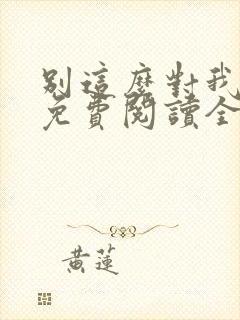 別這麼對我
免費閱讀全
黃蓮